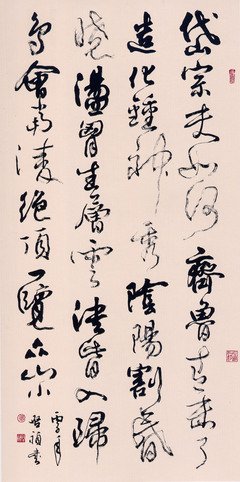 岱宗夫如何齊魯青未了
造化鍾神秀陰陽割昏
曉盪胷生層雲決眥入歸
鳥會當凌絕頂一覽眾山小
書